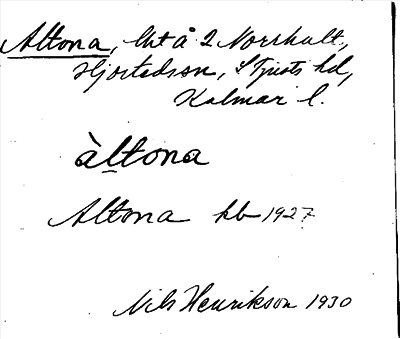 Altona, lht å 2 Norrhult,
Hjortedsson, S Tjusts hd,
Kalmar l.
àltona
Altona hb 1927
Nils Henrikson 1930